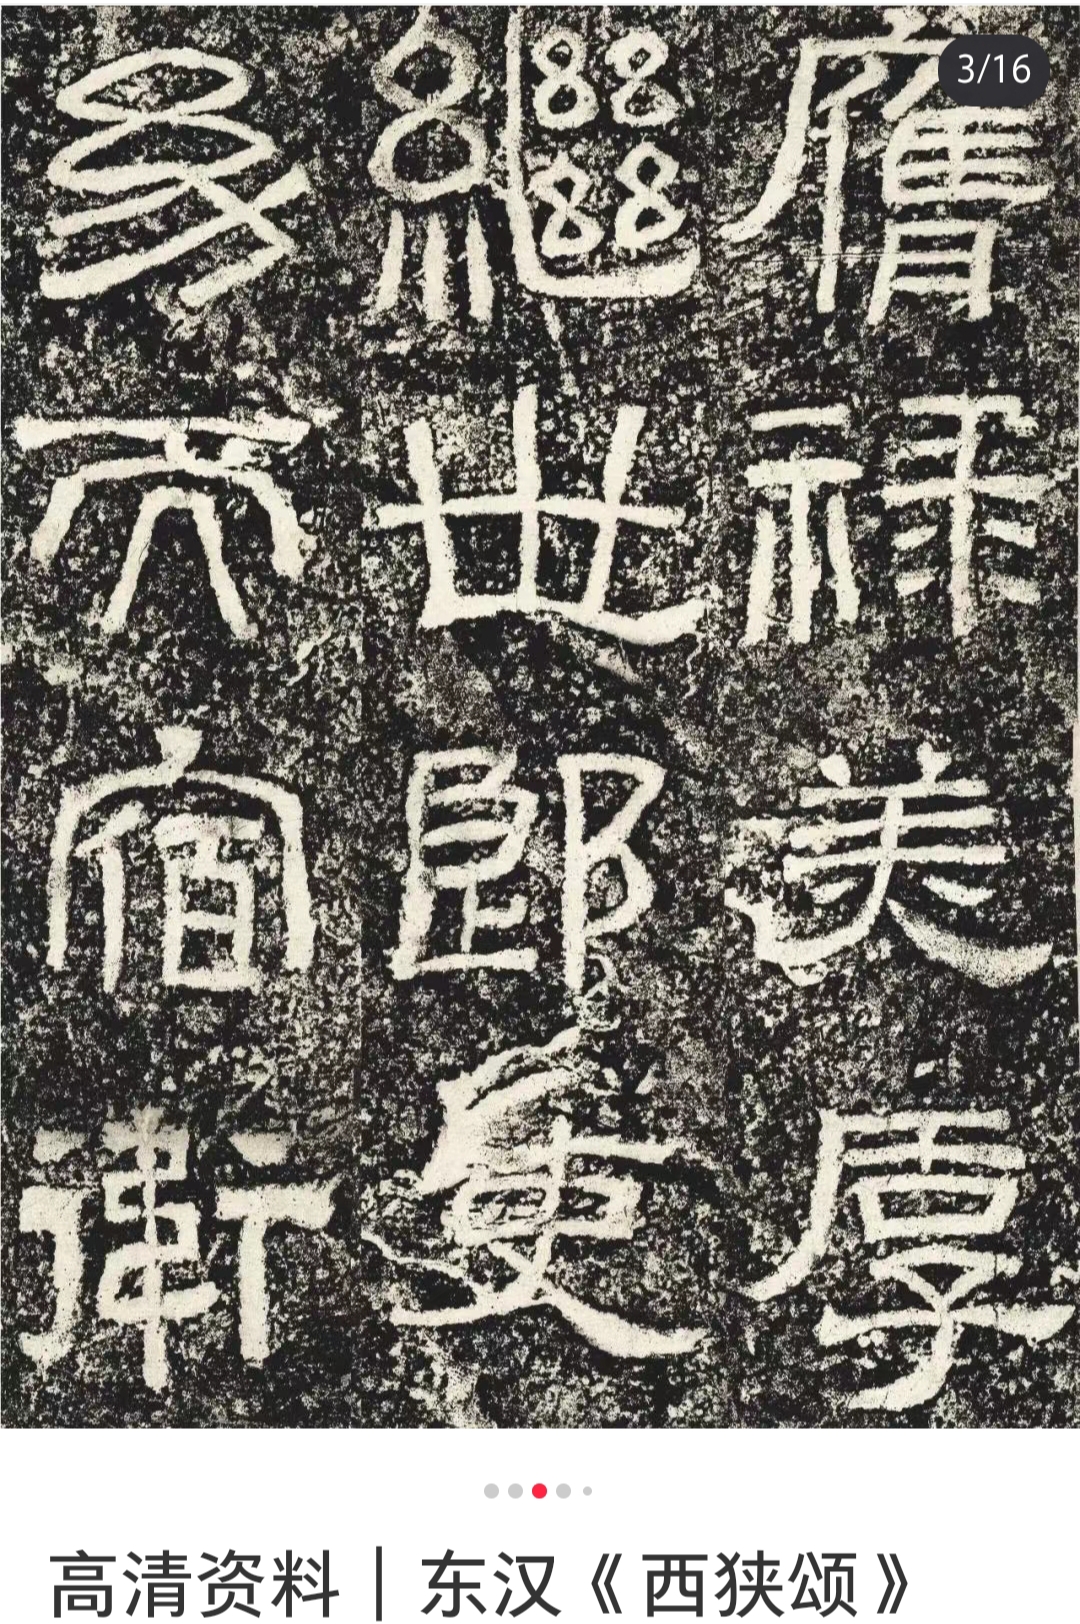 3/16
膺禄美厚
繼世郎吏
幼而宿衛
高清资料｜东汉《西狭颂》